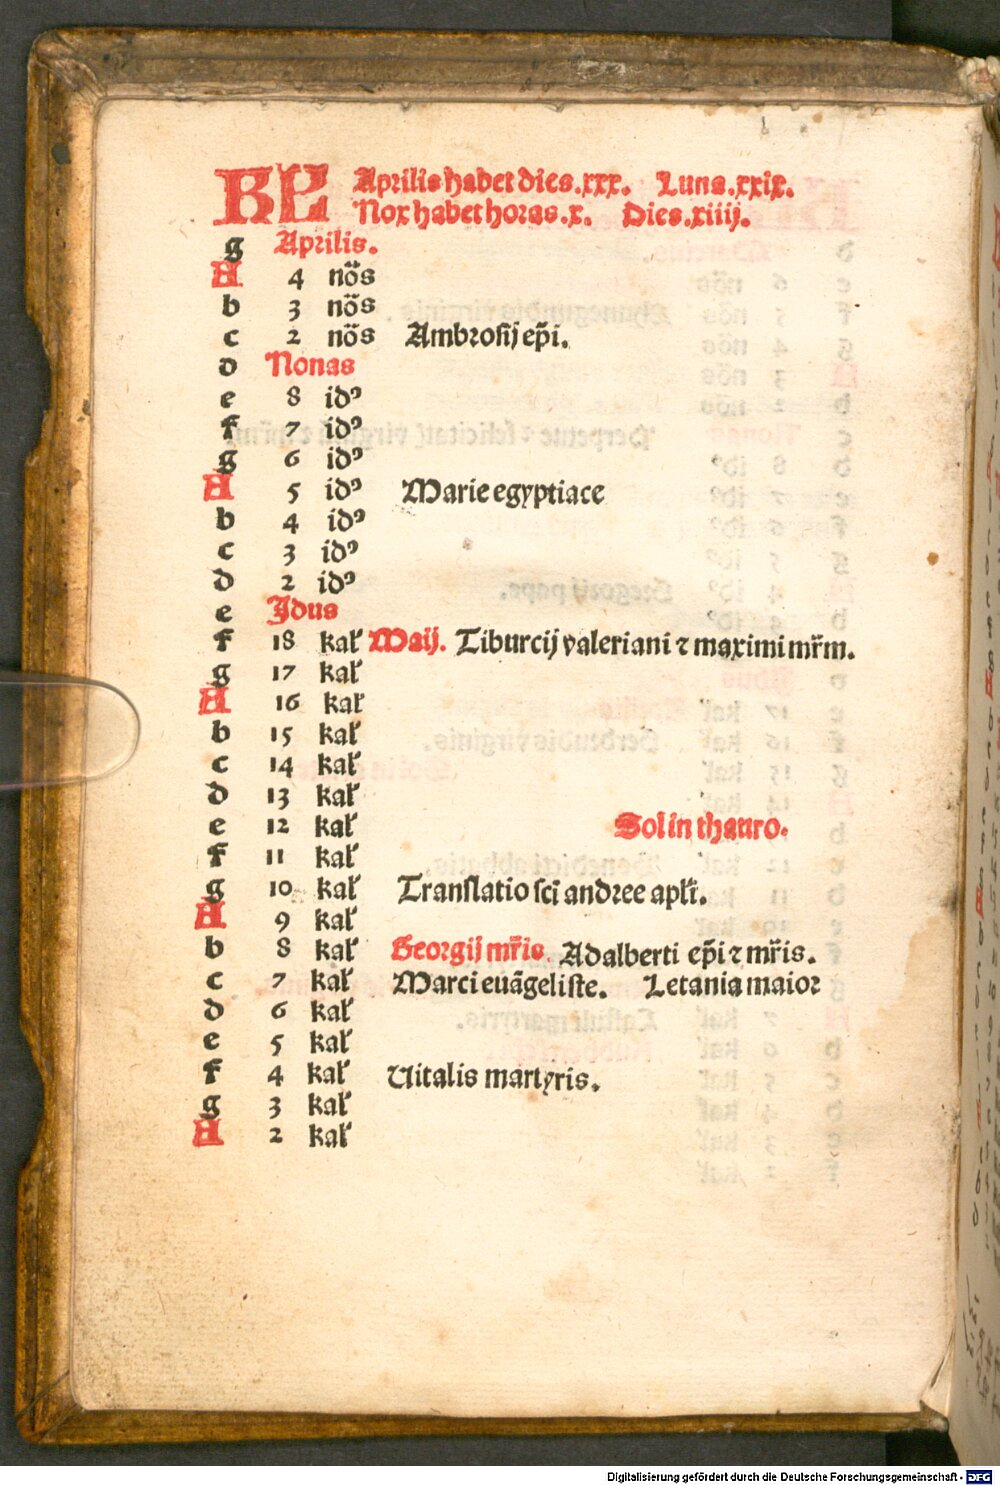 KL Aprilis habet dies.xxx. Luna.xxix.
Nox habet horas.x. Dies.xiiij.
g Aprilis.
A 4 no̅s
b 3 no̅s
c 2 no̅s Ambrosij ep̅i.
d Nonas
e 8 idꝰ
f 7 idꝰ
g 6 idꝰ
A 5 idꝰ Marie egyptiace
b 4 idꝰ
c 3 idꝰ
d 2 idꝰ
e Jdus
f 18 kal' Maij. Tiburcij valeriani ⁊ maximi mr̅m.
g 17 kal'
A 16 kal'
b 15 kal'
c 14 kal'
d 13 kal'
e 12 kal' Sol in thauro.
f 11 kal'
g 10 kal' Translatio sci̅ andree apl'i.
A 9 kal'
b 8 kal' Georgij mr̅is. Adalberti ep̅i ⁊ mr̅is.
c 7 kal' Marci eua̅geliste. Letania maior
d 6 kal'
e 5 kal'
f 4 kal' Uitalis martyris.
g 3 kal'
A 2 kal'
Digitalisierung gefördert durch die Deutsche Forschungsgemeinschaft - DFG